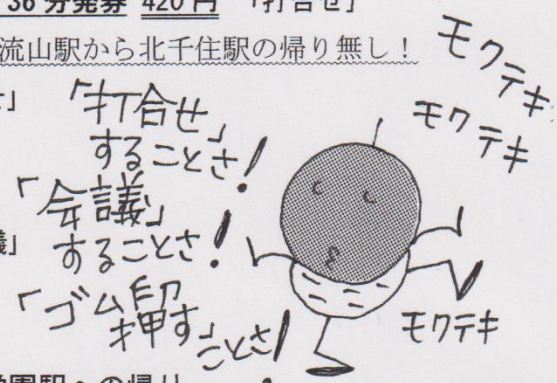 36分発券 420円 「打合せ」
流山駅から北千住駅の帰り無し!
モクテキ
モクテキ
「打合せ」
することさ!
「会議」
することさ!
「ゴム
押す」
ことさ!
モクテキ